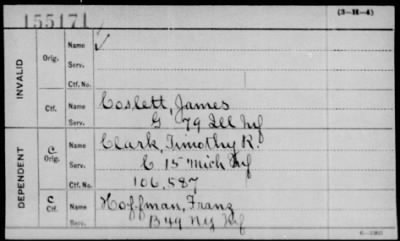 155171
(3-H-4)
INVALID
Orig.
Name ✓
Serv.
Ctf. No.
Ctf.
Name Coslett, James
Serv. G 79 Ill Inf
DEPENDENT
C
Orig.
Name Clark, Timothy R.
Serv. C. 15 Mich Inf
Ctf. No. 106,587
C
Ctf.
Name Hoffman, Franz
Serv. B 49 Ny Inf